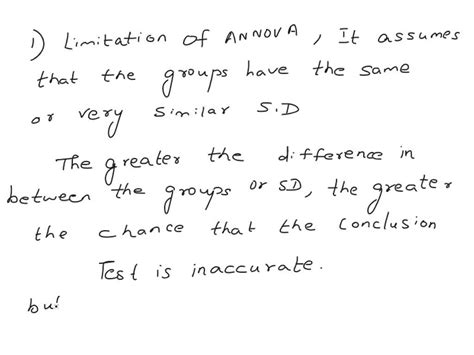 1) Limitation of ANNOVA, It assumes
that the groups have the same
or very similar S.D
The greater the difference in
between the groups or SD, the greater
the chance that the conclusion
Test is inaccurate.
but